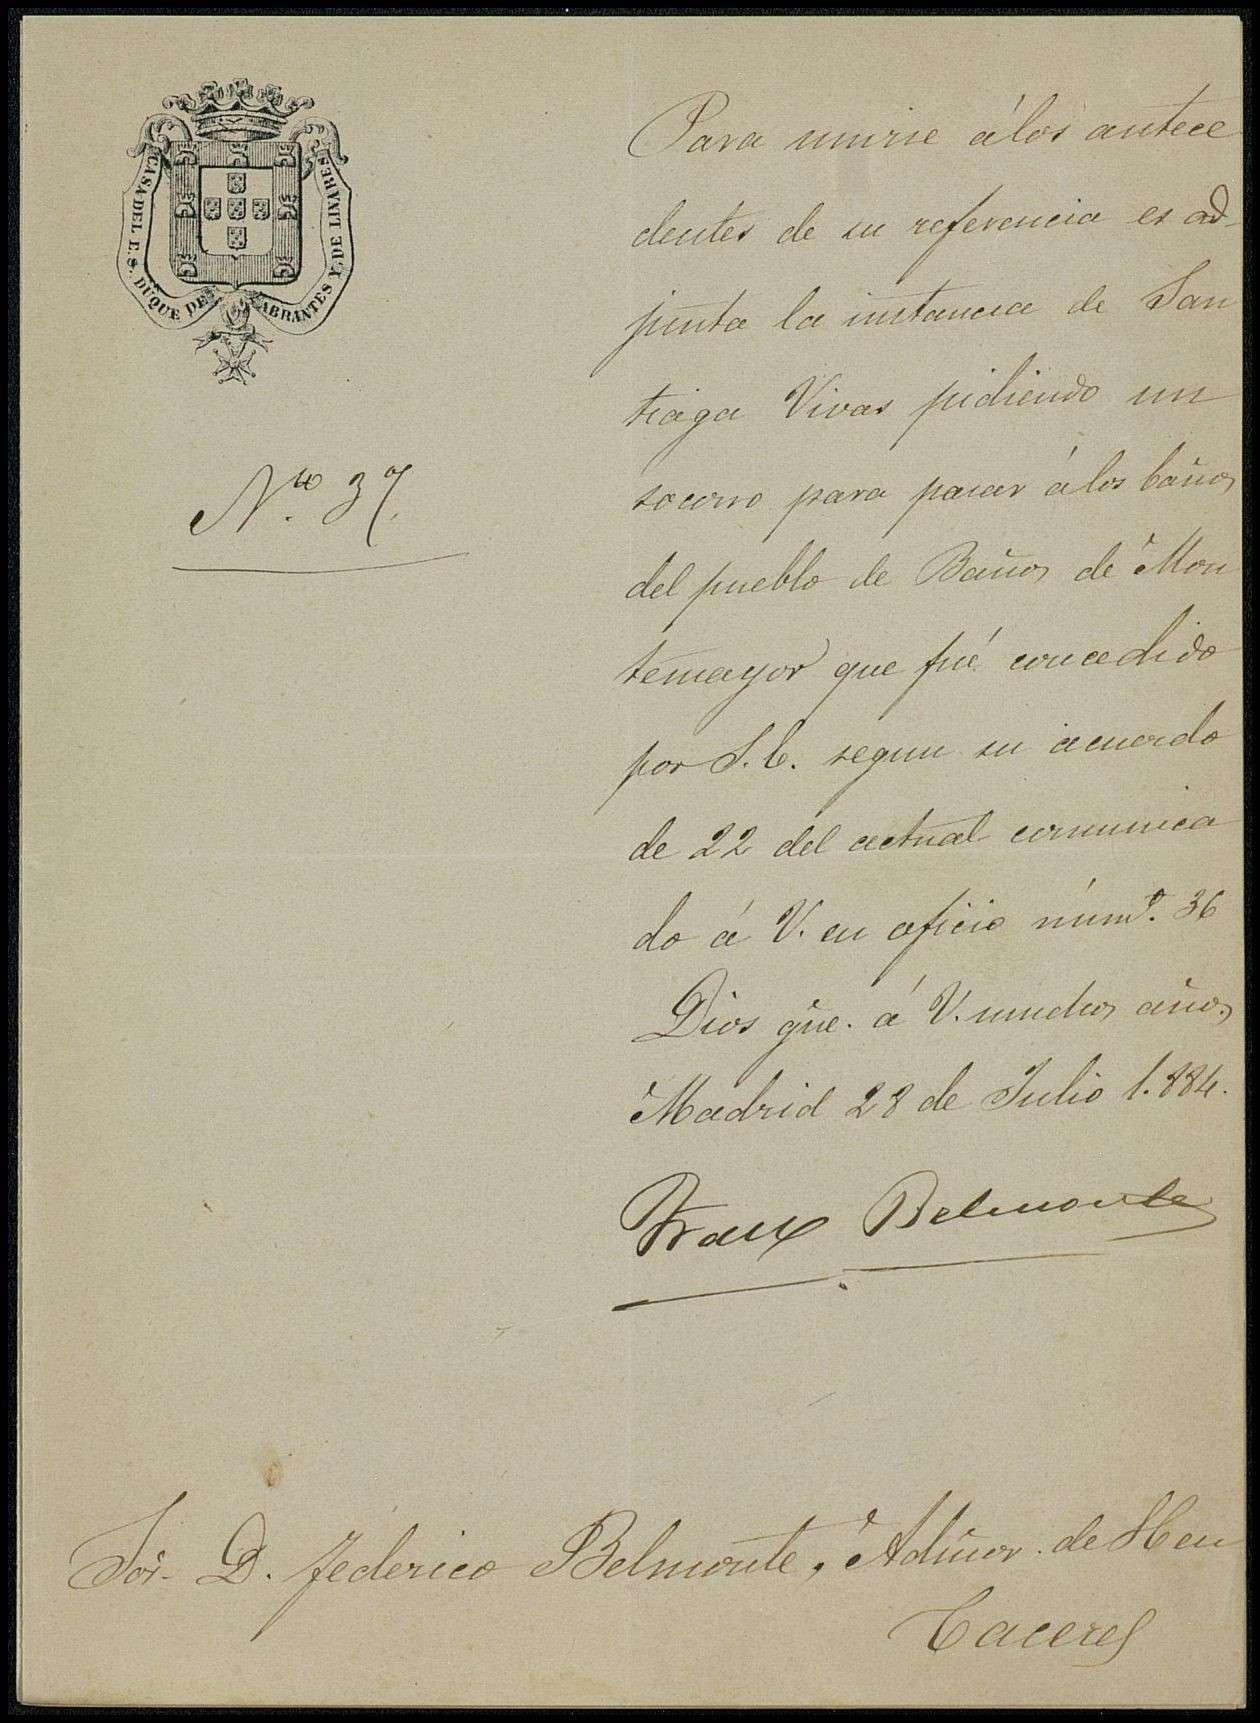 CASA DEL E.S. DUQUE DE ABRANTES Y DE LINARES
Nº 37.
Para unirse á los antece
dentes de su referencia es ad-
junta la instancia de San
tiaga Vivas pidiendo un
socorro para pasar á los baños
del pueblo de Baños de Mon
temayor que fué concedido
por S.E. segun su acuerdo
de 22 del actual comunica
do á V. en oficio númº. 36
Dios gũe. á V. muchos años.
Madrid 28 de Julio 1.884.
Franco Belmonte
Sor. D. Federico Belmonte, Admor. de S.E. en
Caceres